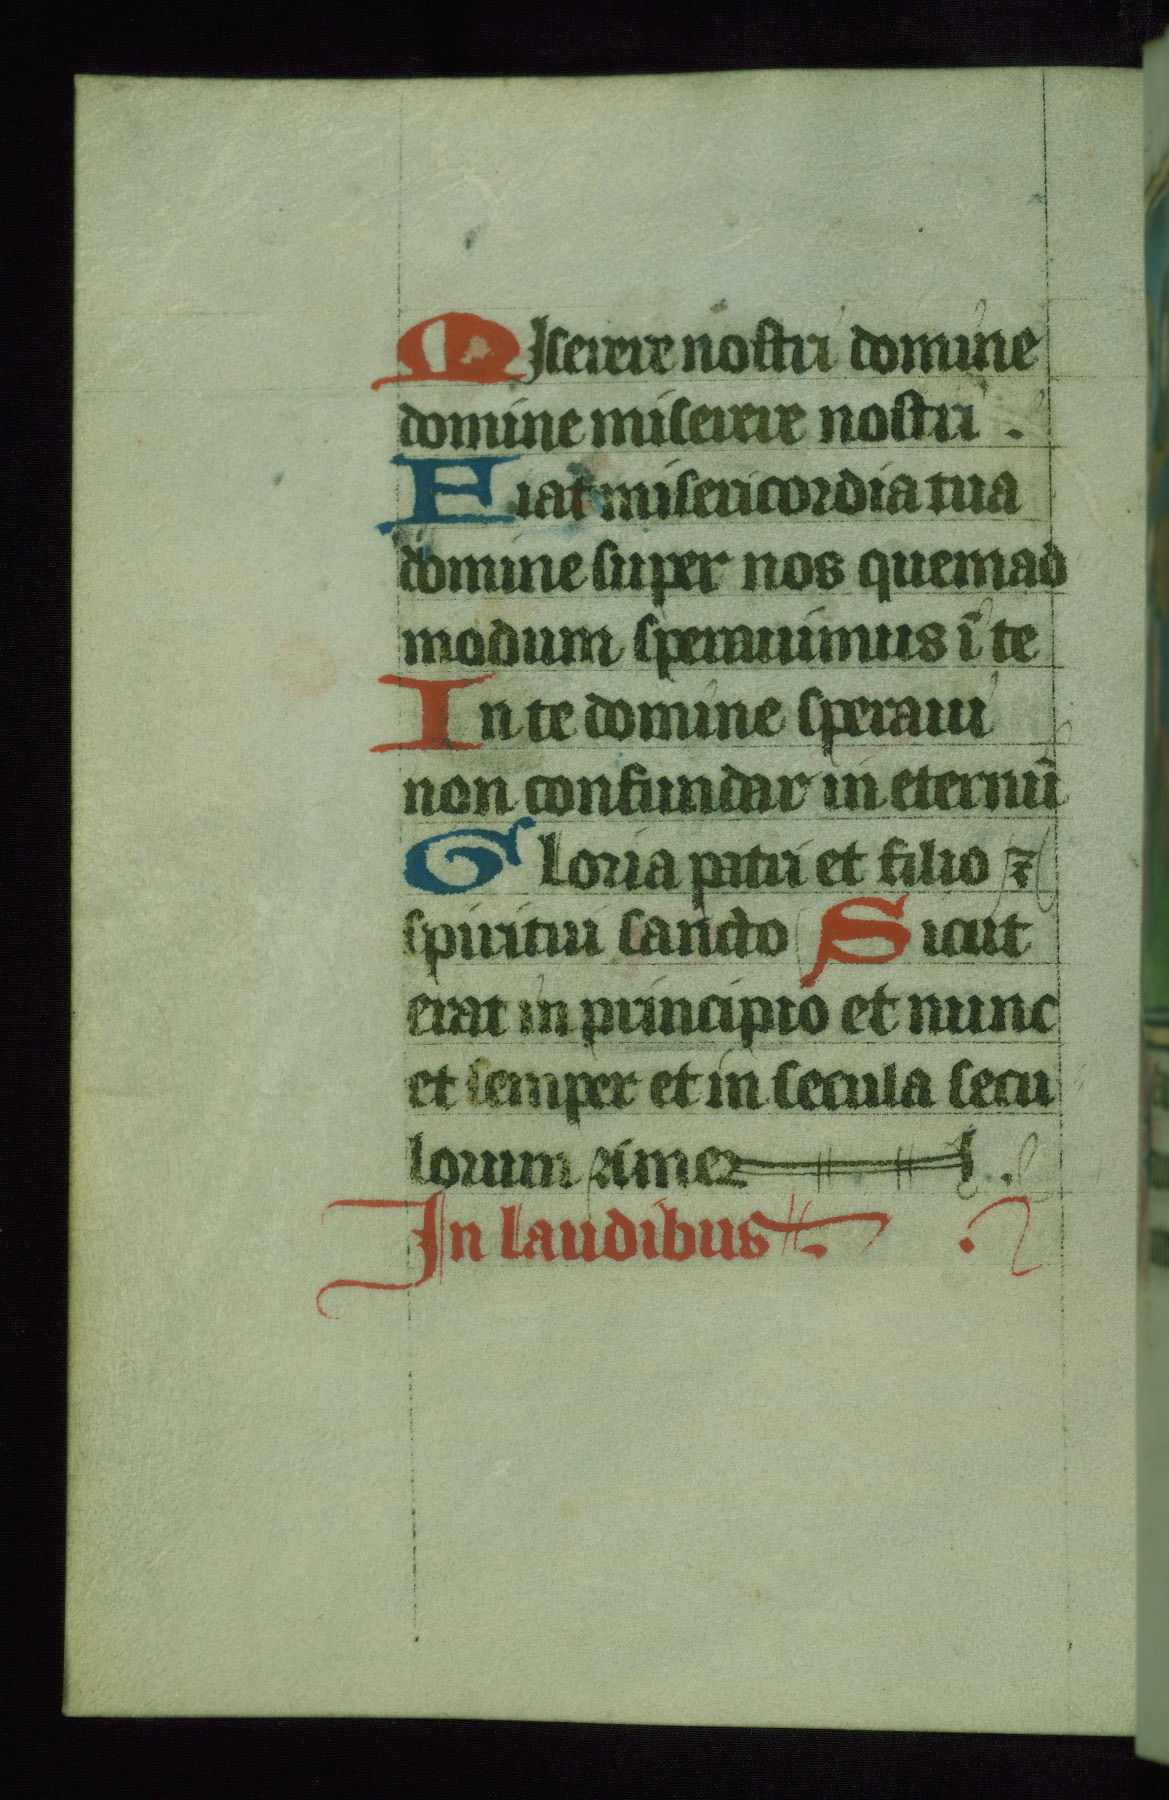 Miserere nostri domine
domine miserere nostri .
Fiat misericordia tua
domine super nos quemad
modum sperauimus ī te
In te domine speraui
non confundar in eternū
Gloria patri et filio ⁊
spiritui sancto Sicut
erat in principio et nunc
et semper et in secula secu
lorum Amen .
In laudibus .